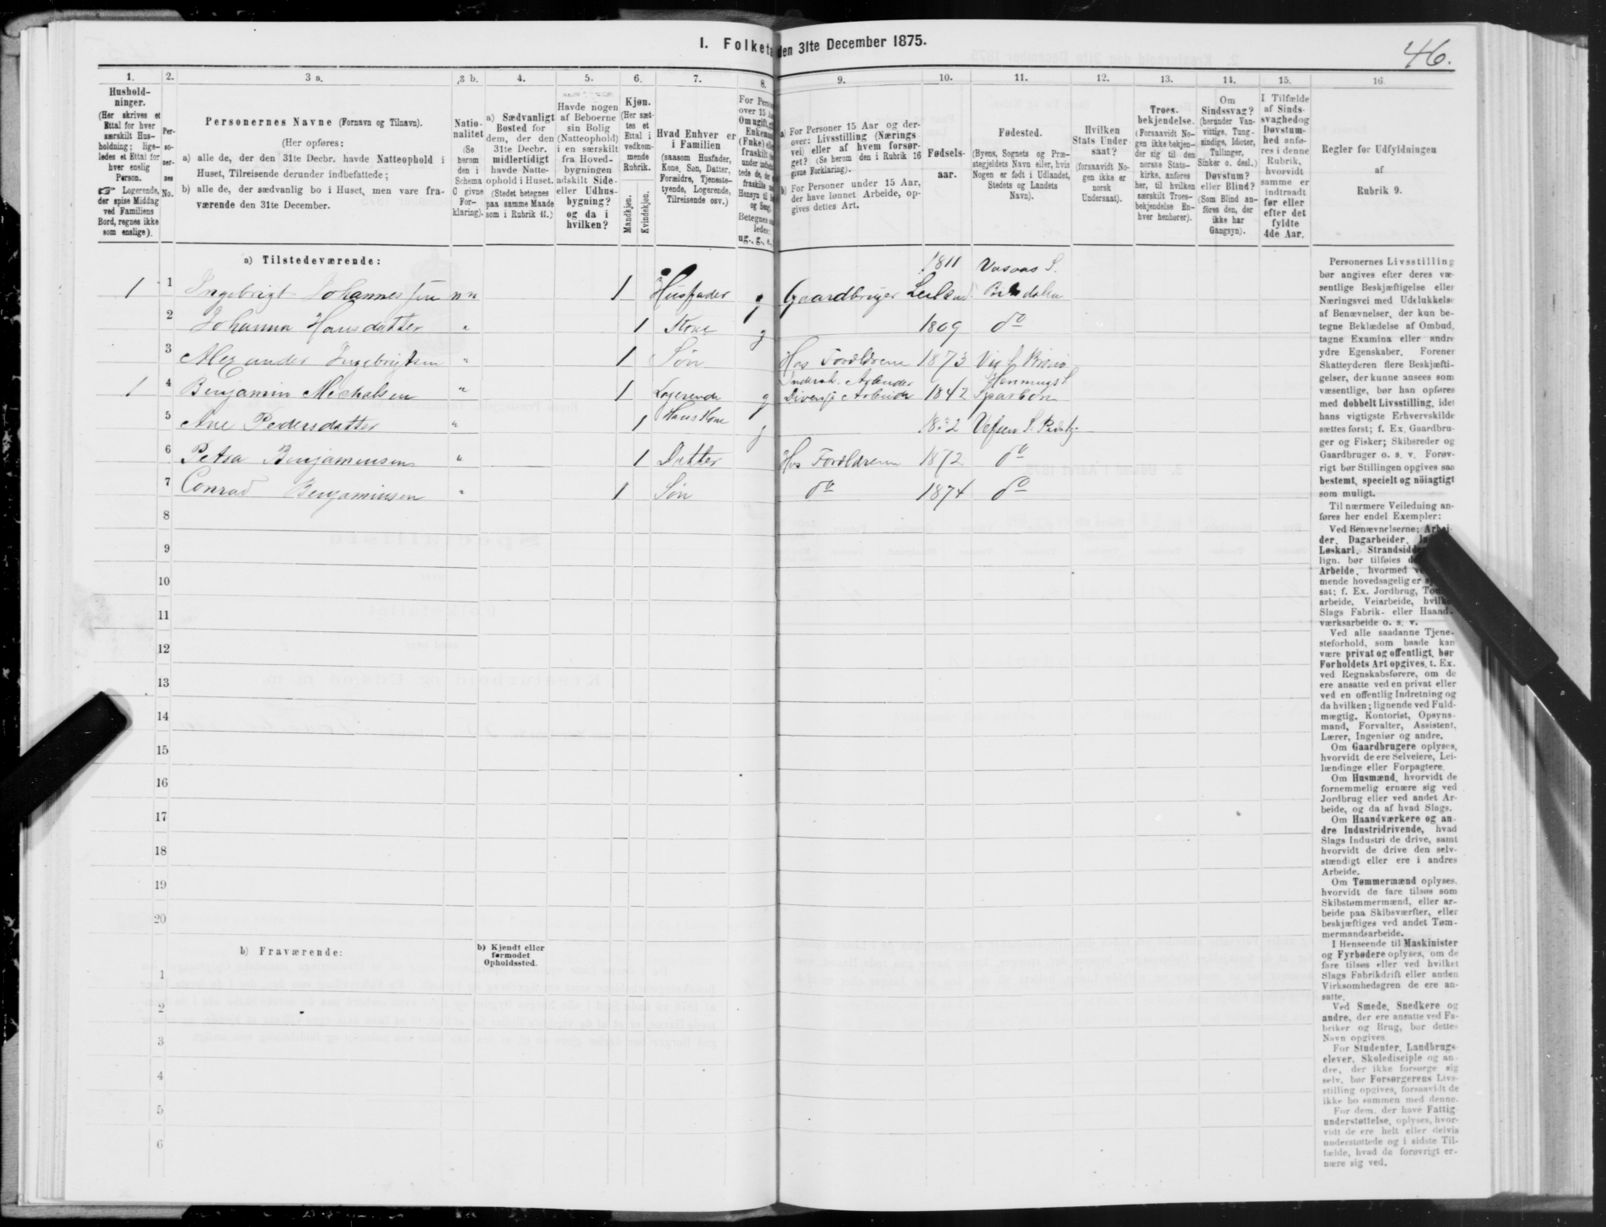 I. Folketæ
den 31te December 1875.
46.
1. 2. 3 a. 3 b. 4. 5. 6. 7. 8. 9. 10. 11. 12. 13. 14. 15. 16.
Hushold-
ninger.
(Her skrives et
Ettal for hver
særskilt Hus-
holdning; lige-
ledes et Ettal for
hver enslig
Person.
☞ Logerende,
der spise Middag
ved Familiens
Bord, regnes ikke
som enslige).
Per-
so-
ner-
nes
No.
Personernes Navne (Fornavn og Tilnavn).
(Her opføres:
a) alle de, der den 31te Decbr. havde Natteophold i
Huset, Tilreisende derunder indbefattede;
b) alle de, der sædvanlig bo i Huset, men vare fra-
værende den 31te December.
Natio-
nalitet
(Se
herom
den i
Schema
C givne
For-
klaring).
a) Sædvanligt
Bosted for
dem, der den
31te Decbr.
midlertidigt
havde Natte-
ophold i Huset.
(Stedet betegnes
paa samme Maade
som i Rubrik 11.)
Havde nogen
af Beboerne
sin Bolig
(Natteophold)
i en særskilt
fra Hoved-
bygningen
adskilt Side-
eller Udhus-
bygning?
og da i
hvilken?
Kjøn.
(Her sæt-
tes et
Ettal i
vedkom-
mende
Rubrik.
Mandkjøn.
Kvindekjøn.
Hvad Enhver er
i Familien
(saasom Husfader,
Kone, Søn, Datter,
Forældre, Tjeneste-
tyende, Logerende,
Tilreisende osv.)
a) For Personer 15 Aar og der-
over: Livsstilling (Nærings
vei) eller af hvem forsør-
get? (Se herom den i Rubrik 16
givne Forklaring).
b) For Personer under 15 Aar,
der have lønnet Arbeide, op-
gives dettes Art.
Fødsels-
aar.
Fødested.
(Byens, Sognets og Præ-
stegjeldets Navn eller, hvis
Nogen er født i Udlandet,
Stedets og Landets
Navn).
Hvilken
Stats Under
saat?
(forsaavidt No-
gen ikke er
norsk
Undersaat).
Troes-
bekjendelse.
(Forsaavidt No-
gen ikke bekjen-
der sig til den
norske Stats-
kirke, anføres
her, til hvilken
særskilt Troes-
bekjendelse En-
hver henhører).
Om
Sindssvag?
(herunder Van-
vittige, Tung-
sindige, Idioter,
Tullinger,
Sinker o. desl.)
Døvstum?
eller Blind?
(Som Blind an-
føres den, der
ikke har
Gangsyn).
I Tilfælde
af Sinds-
svaghed og
Døvstum-
hed anfø-
res i denne
Rubrik,
hvorvidt
samme er
indtraadt
før eller
efter det
fyldte
4de Aar.
Regler for Udfyldningen
af
Rubrik 9.
a) Tilstedeværende:
1 1 Ingebrigt Johannessen nn 1 Husfader g Gaardbruger 1811
2 Johanna Hansdatter " 1 Kone g 1809 do
3 Alexander Ingebrigtsen " 1 Søn Hos Forældrene 1873
1 4 Benjamin Mechalsen " 1 Logerende g 1842
5 Ane Pedersdatter " 1 Hans Kone g Vefsen S.
6 Petra Benjaminsen " 1 Datter Hos Forældrene 1872 do
7 Conrad Benjaminsen " 1 Søn do 1874 do
8
9
10
11
12
13
14
15
16
17
18
19
20
b) Fraværende:
b) Kjendt eller
formodet
Opholdssted.
1
2
3
4
5
6
Personernes Livsstilling
bør angives efter deres væ-
sentlige Beskjæftigelse eller
Næringsvei med Udelukkelse
af Benævnelser, der kun be-
tegne Beklædelse af Ombud,
tagne Examina eller andre
ydre Egenskaber. Forener
Skatteyderen flere Beskjæfti-
gelser, der kunne ansees som
væsentlige, bør han opføres
med dobbelt Livsstilling, idet
hans vigtigste Erhvervskilde
sættes først; f. Ex. Gaardbru-
ger og Fisker; Skibsreder og
Gaardbruger o. s. v. Forøv-
rigt bør Stillingen opgives saa
bestemt, specielt og nøiagtigt
som muligt.
Til nærmere Veiledning an-
føres her endel Exempler:
Ved Benævnelserne: Arbei-
der, Dagarbeider,
Løskarl, Strandsidder
lign. bør tilføies
Arbeide, hvormed
mende hovedsagelig er
sat; f. Ex. Jordbrug,
arbeide, Veiarbeide,
Slags Fabrik- eller Haand-
værksarbeide o. s. v.
Ved alle saadanne Tjene-
steforhold, som baade kan
være privat og offentligt, bør
Forholdets Art opgives, t. Ex.
ved Regnskabsførere, om de
ere ansatte ved en privat eller
ved en offentlig Indretning og
da hvilken; lignende ved Fuld-
mægtig, Kontorist, Opsyns-
mand, Forvalter, Assistent,
Lærer, Ingeniør og andre.
Om Gaardbrugere oplyses,
hvorvidt de ere Selveiere, Lei-
lændinge eller Forpagtere.
Om Husmænd, hvorvidt de
fornemmelig ernære sig ved
Jordbrug eller ved andet Ar-
beide, og da af hvad Slags.
Om Haandværkere og an-
dre Industridrivende, hvad
Slags Industri de drive, samt
hvorvidt de drive den selv-
stændigt eller ere i andres
Arbeide.
Om Tømmermænd oplyses,
hvorvidt de fare tilsøs som
Skibstømmermænd, eller ar-
beide paa Skibsværfter, eller
beskjæftiges ved andet Tøm-
mermandsarbeide.
I Henseende til Maskinister
og Fyrbødere oplyses, om de
fare tilsøs eller ved hvilket
Slags Fabrikdrift eller anden
Virksomhedsgren de ere an-
satte.
Ved Smede, Snedkere og
andre, der ere ansatte ved Fa-
briker og Brug, bør dettes
Navn opgives
For Studenter, Landbrugs-
elever, Skoledisciple og an-
dre, der ikke forsørge sig
selv, bør Forsørgerens Livs-
stilling opgives, forsaavidt de
ikke bo sammen med denne.
For dem, der have Fattig-
understøttelse, oplyses, hvor-
vidt de ere helt eller delvis
understøttede og i sidste Til-
fælde, hvad de forøvrigt er-
nære sig ved.